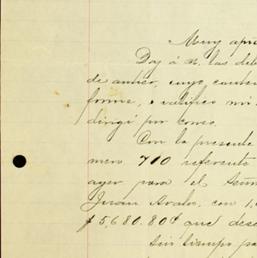 Muy apre
Doy á U. las de
de antier, cuyo conte
forme, i ratifico mi
dirigí por correo.
Con la presente
mero 710 referente
ayer para el Señ
Juan con 1,
$ 5,680.80 que des
Sin tiempo pa